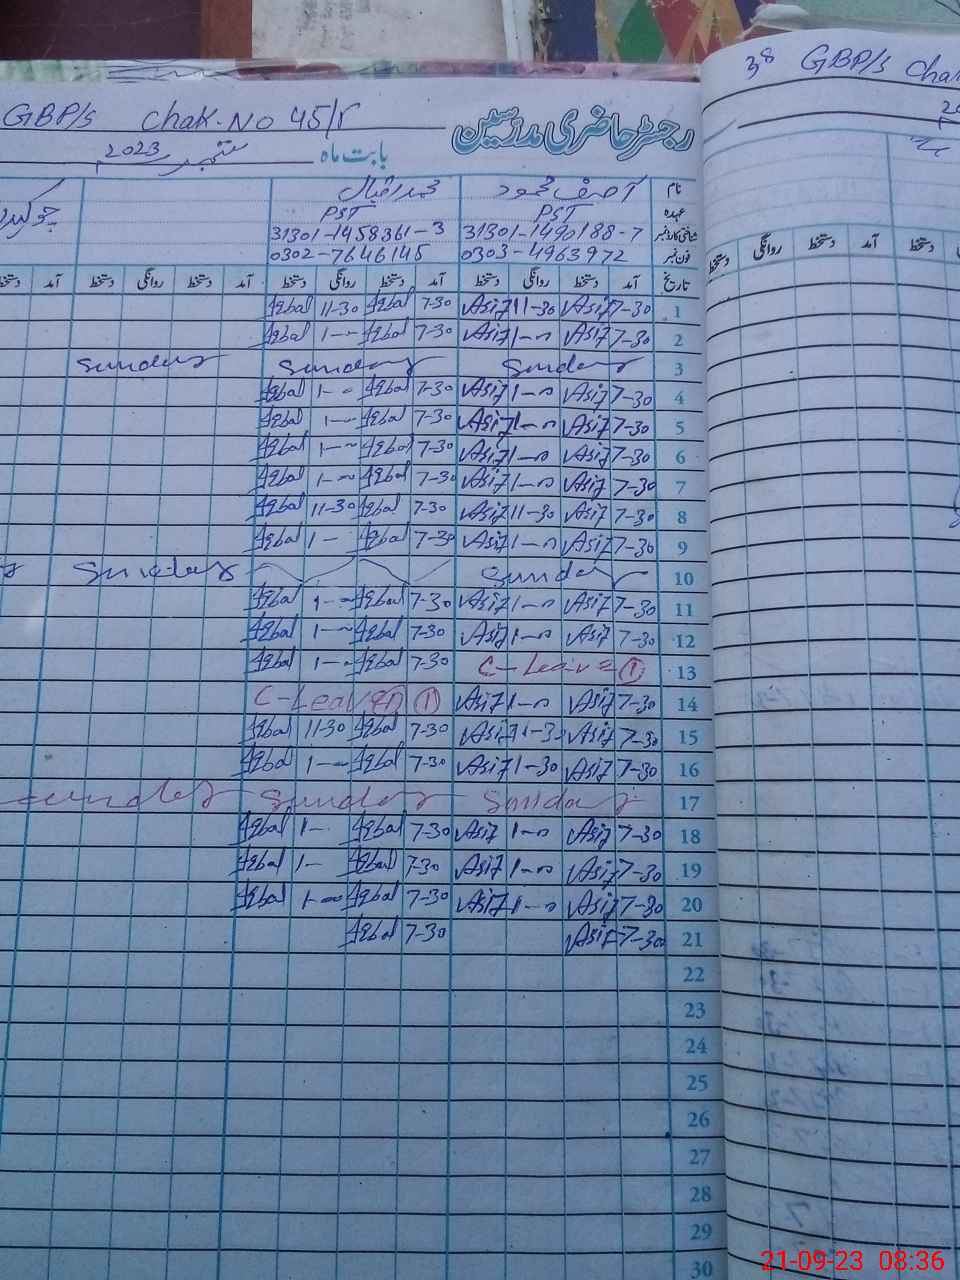 GBP/s Chak.No 45/r رجسٹر حاضری مدرسین
38 GBP/s Cha
بابت ماہ ستمبر 2023
نام آصف محمود محمد اقبال
عہدہ PST PST
شناختی کارڈ نمبر 31301-1490188-7 31301-1458361-3
فون نمبر 0303-4963972 0302-7646145
تاریخ آمد دستخط روانگی دستخط آمد دستخط روانگی دستخط آمد دستخط روانگی دستخط آمد
دستخط آمد دستخط روانگی دستخط
1 7-30 Asif 11-30 Asif 7-30 Iqbal 11-30 Iqbal
2 7-30 Asif 1-- Asif 7-30 Iqbal 1-- Iqbal
3 Sunday Sunday Sunday
4 7-30 Asif 1-- Asif 7-30 Iqbal 1-- Iqbal
5 7-30 Asif 1-- Asif 7-30 Iqbal 1-- Iqbal
6 7-30 Asif 1-- Asif 7-30 Iqbal 1-- Iqbal
7 7-30 Asif 1-- Asif 7-30 Iqbal 1-- Iqbal
8 7-30 Asif 11-30 Asif 7-30 Iqbal 11-30 Iqbal
9 7-30 Asif 1-- Asif 7-30 Iqbal 1- Iqbal
10 Sunday Sunday
11 7-30 Asif 1-- Asif 7-30 Iqbal 1-- Iqbal
12 7-30 Asif 1-- Asif 7-30 Iqbal 1-- Iqbal
13 C-Leave ① 7-30 Iqbal 1-- Iqbal
14 7-30 Asif 1-- Asif C-Leave ①
15 7-30 Asif Asif 7-30 Iqbal 11-30 Iqbal
16 7-30 Asif 1-30 Asif 7-30 Iqbal 1-- Iqbal
17 Sunday Sunday Sunday
18 7-30 Asif 1-- Asif 7-30 Iqbal 1-- Iqbal
19 7-30 Asif 1-- Asif 7-30 Iqbal 1- Iqbal
20 7-30 Asif 1-- Asif 7-30 Iqbal 1-- Iqbal
21 7-30 Asif 7-30 Iqbal
22
23
24
25
26
27
28
29
30
21-09-23 08:36